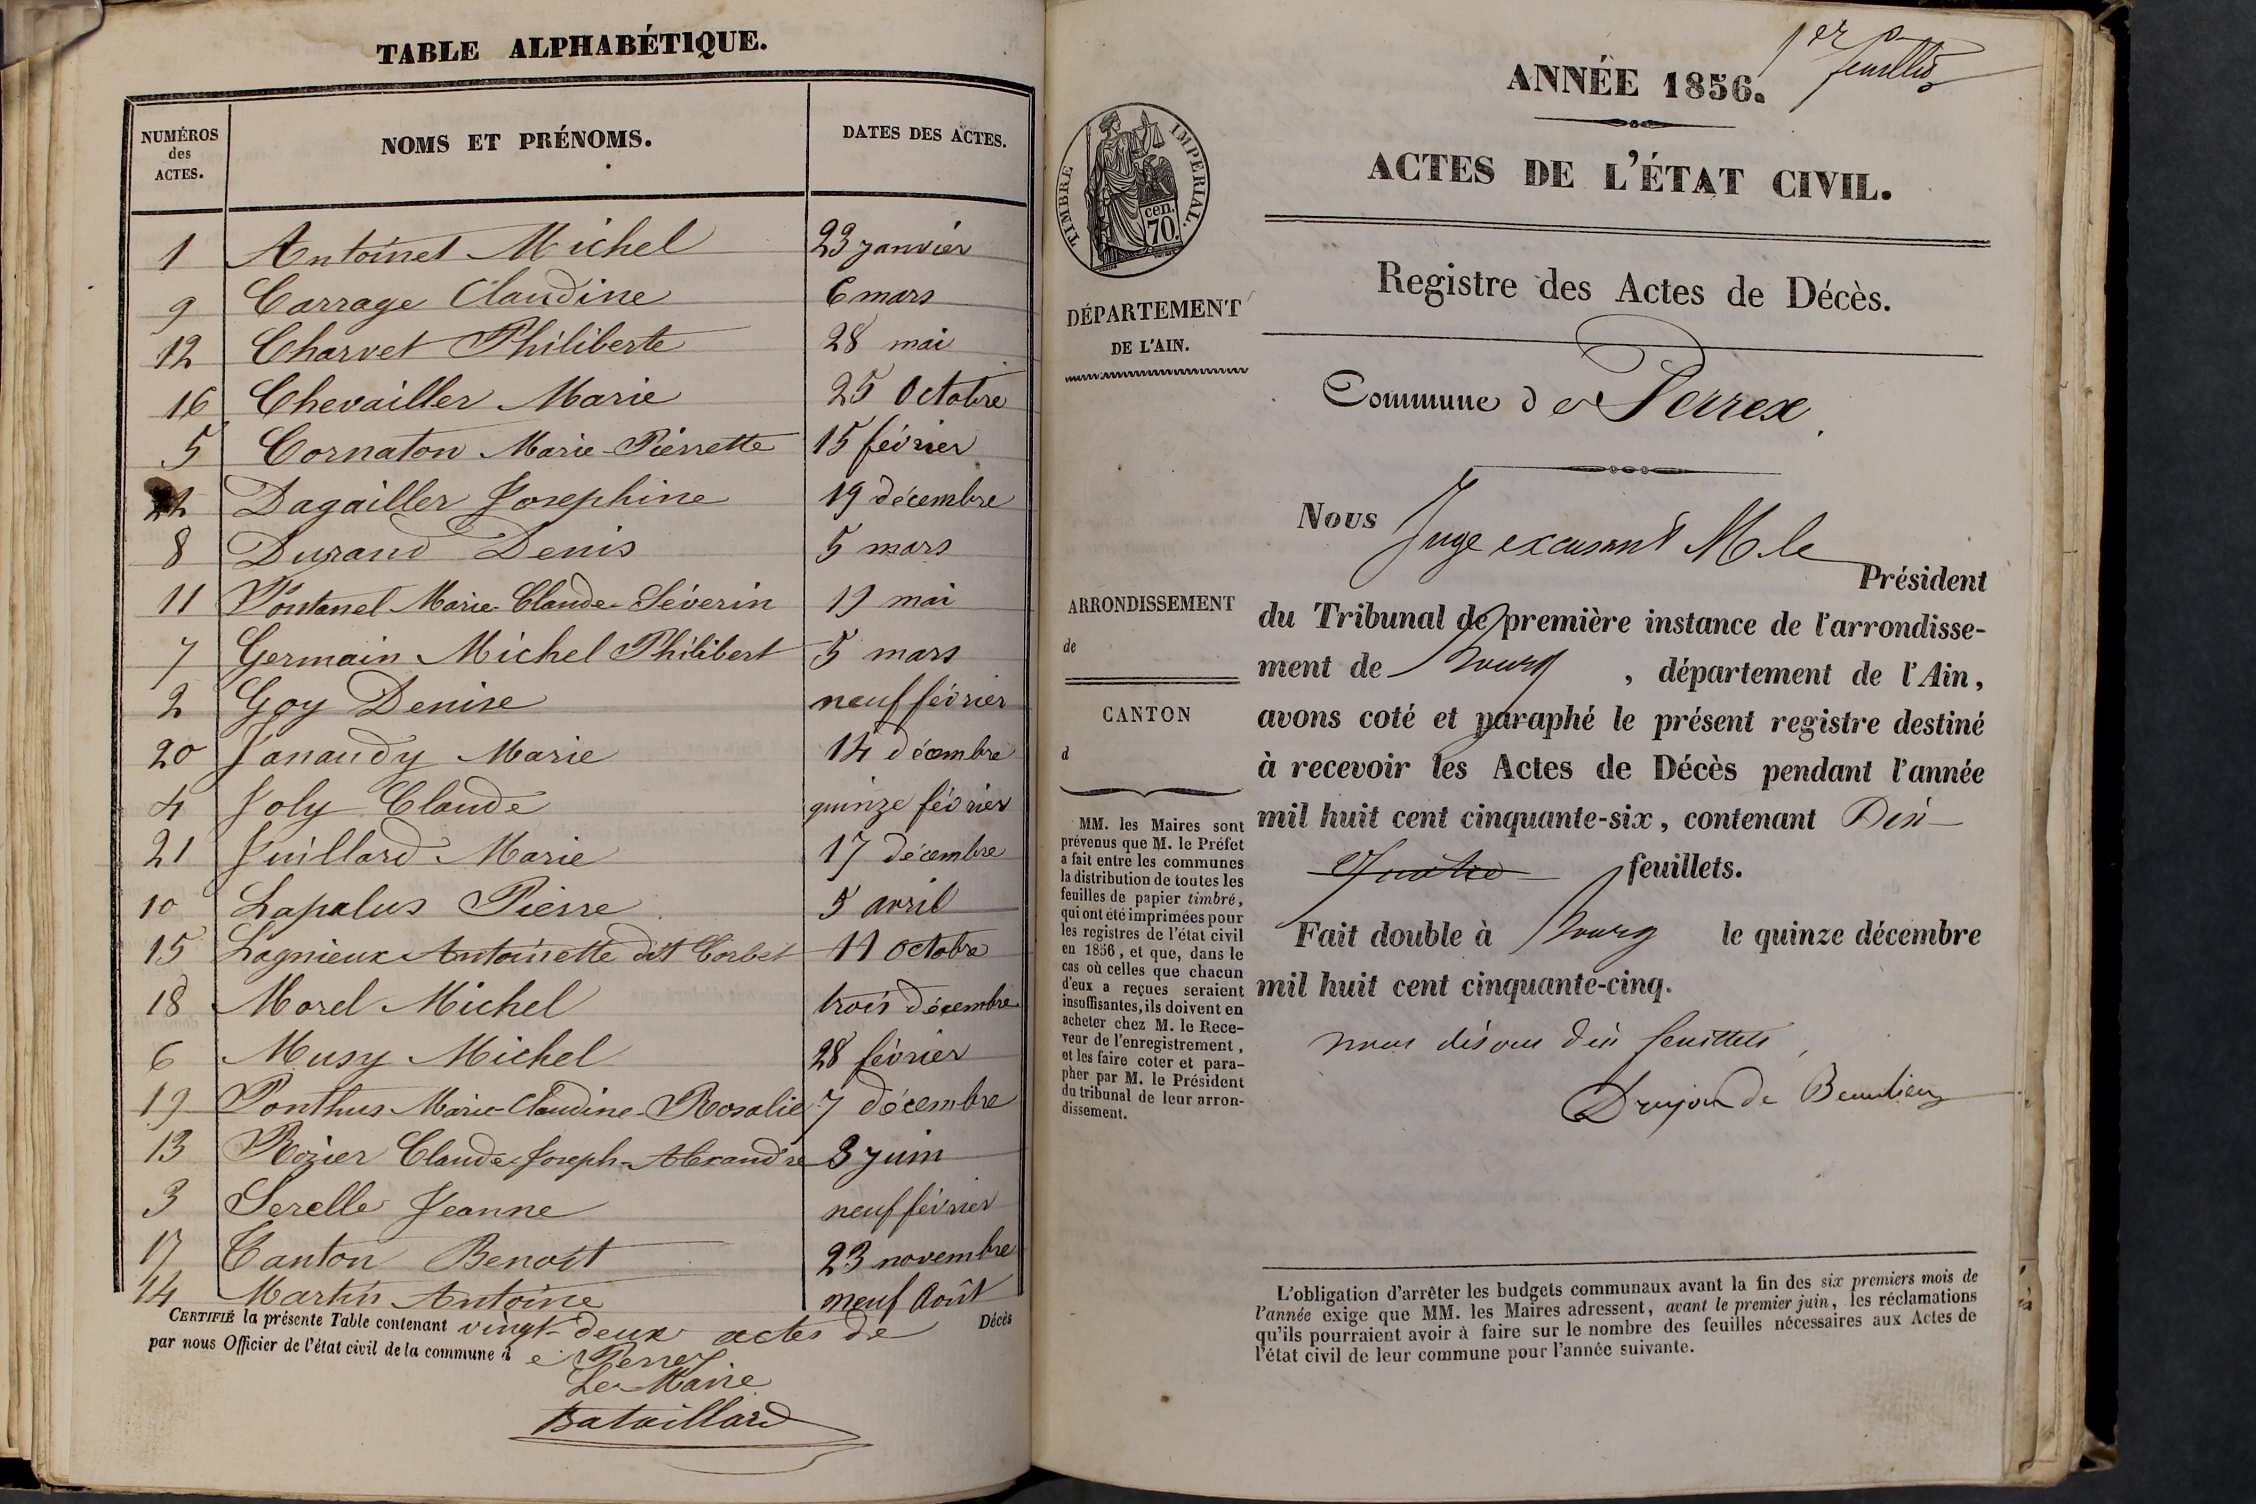 TABLE ALPHABÉTIQUE.
NUMÉROS des ACTES.
NOMS ET PRÉNOMS.
DATES DES ACTES.
1 Antoinet Michel 23 janvier
9 Carrage Claudine 6 mars
12 Charvet Philiberte 28 mai
16 Chevailler Marie 25 Octobre
5 Cornaton Marie-Pierrette 15 février
22 Dagailler Josephine 19 décembre
8 Durand Denis 5 mars
11 Fontanel Marie-Claude-Séverin 19 mai
7 Germain Michel Philibert 5 mars
2 Goy Denise neuf février
20 Janaudy Marie 14 décembre
4 Joly Claude quinze février
21 Juillard Marie 17 décembre
10 Lapalus Pierre 5 avril
15 Lagnieux Antoinette dit Corbet 11 octobre
18 Morel Michel trois décembre
6 Musy Michel 28 février
19 Ponthus Marie-Claudine-Rosalie 7 décembre
13 Rozier Claude-Joseph-Alexandre 3 juin
3 Serelle Jeanne neuf février
17 Tanton Benoît 23 novembre
14 Martin Antoine neuf Août
CERTIFIÉ la présente Table contenant vingt-deux actes de Décès
par nous Officier de l'état civil de la commune d e Perrex
Le Maire
Bataillard
1er feuillet
ANNÉE 1856.
ACTES DE L'ÉTAT CIVIL.
TIMBRE IMPERIAL.
cen.
70.
Registre des Actes de Décès.
DÉPARTEMENT
DE L'AIN.
Commune d e Perrex.
Nous Juge excusant M. le Président
du Tribunal de première instance de l'arrondisse-
ment de Bourg, département de l'Ain,
avons coté et paraphé le présent registre destiné
à recevoir les Actes de Décès pendant l'année
mil huit cent cinquante-six, contenant Dix
Quatre feuillets.
Fait double à Bourg le quinze décembre
mil huit cent cinquante-cinq.
nous disons dix feuillets
Drujon de Beaulieu
ARRONDISSEMENT
de
CANTON
d
MM. les Maires sont
prévenus que M. le Préfet
a fait entre les communes
la distribution de toutes les
feuilles de papier timbré,
qui ont été imprimées pour
les registres de l'état civil
en 1856, et que, dans le
cas où celles que chacun
d'eux a reçues seraient
insuffisantes, ils doivent en
acheter chez M. le Rece-
veur de l'enregistrement,
et les faire coter et para-
pher par M. le Président
du tribunal de leur arron-
dissement.
L'obligation d'arrêter les budgets communaux avant la fin des six premiers mois de
l'année exige que MM. les Maires adressent, avant le premier juin, les réclamations
qu'ils pourraient avoir à faire sur le nombre des feuilles nécessaires aux Actes de
l'état civil de leur commune pour l'année suivante.